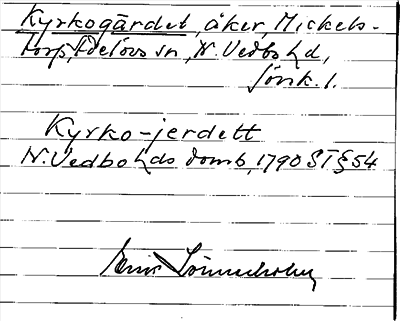 Kyrkogärdet, åker, Mickels-
torp, Adelövs sn, N. Vedbo hd,
Jönk. l.
Kyrko-jerdett
N. Vedbo hds domb, 1790 ST § 54